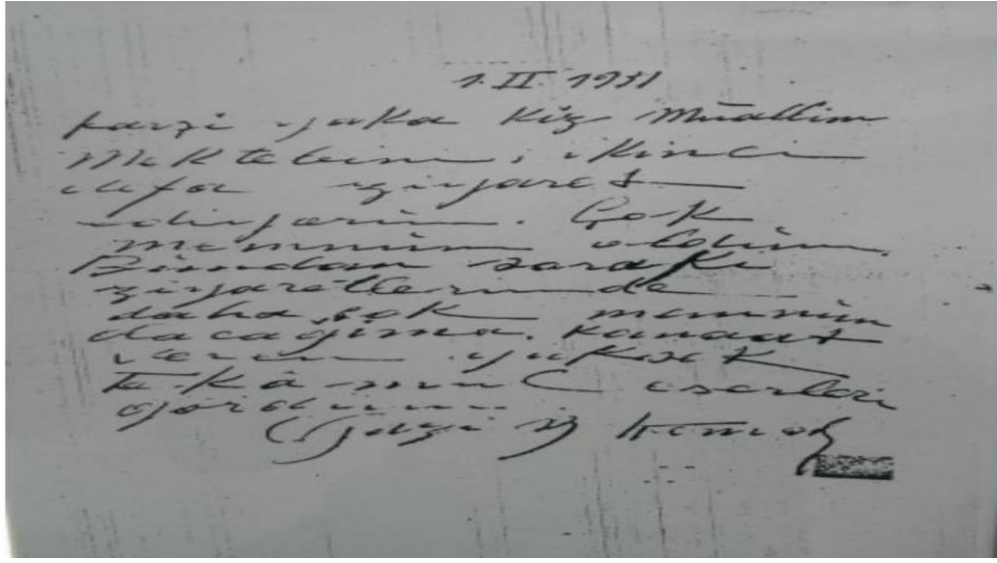 1. II. 1931
Karşı yaka Kız Muallim
Mektebini, ikinci
defa ziyaret
ediyorum. Çok
memnun oldum.
Bundan sonraki
ziyaretlerimde
daha çok memnun
olacağıma kanaat
veren yüksek
tekâmül eserleri
gördüm.
Gazi M Kemal